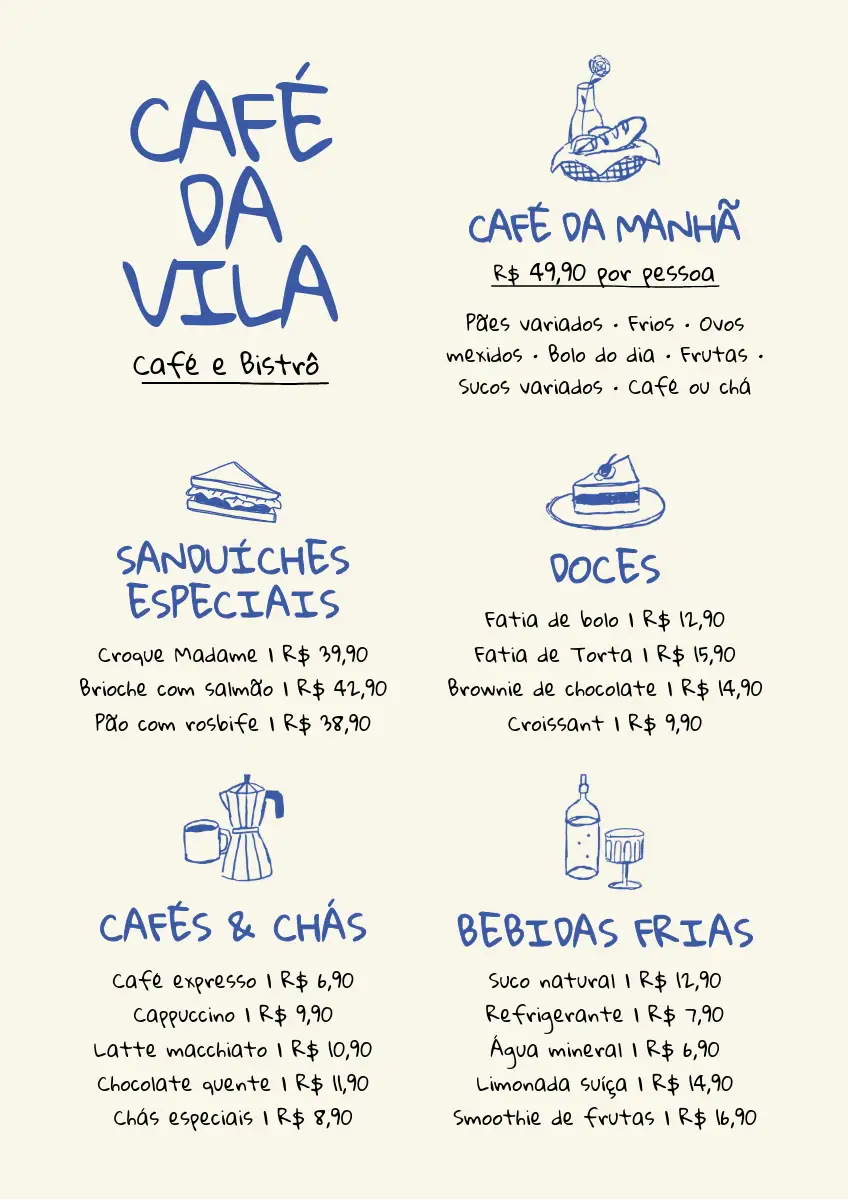 CAFÉ
DA
VILA
Café e Bistrô
CAFÉ DA MANHÃ
R$ 49,90 por pessoa
Pães variados • Frios • Ovos
mexidos • Bolo do dia • Frutas •
Sucos variados • Café ou chá
SANDUÍCHES
ESPECIAIS
Croque Madame | R$ 39,90
Brioche com salmão | R$ 42,90
Pão com rosbife | R$ 38,90
DOCES
Fatia de bolo | R$ 12,90
Fatia de Torta | R$ 15,90
Brownie de chocolate | R$ 14,90
Croissant | R$ 9,90
CAFÉS & CHÁS
Café expresso | R$ 6,90
Cappuccino | R$ 9,90
Latte macchiato | R$ 10,90
Chocolate quente | R$ 11,90
Chás especiais | R$ 8,90
BEBIDAS FRIAS
Suco natural | R$ 12,90
Refrigerante | R$ 7,90
Água mineral | R$ 6,90
Limonada suíça | R$ 14,90
Smoothie de frutas | R$ 16,90